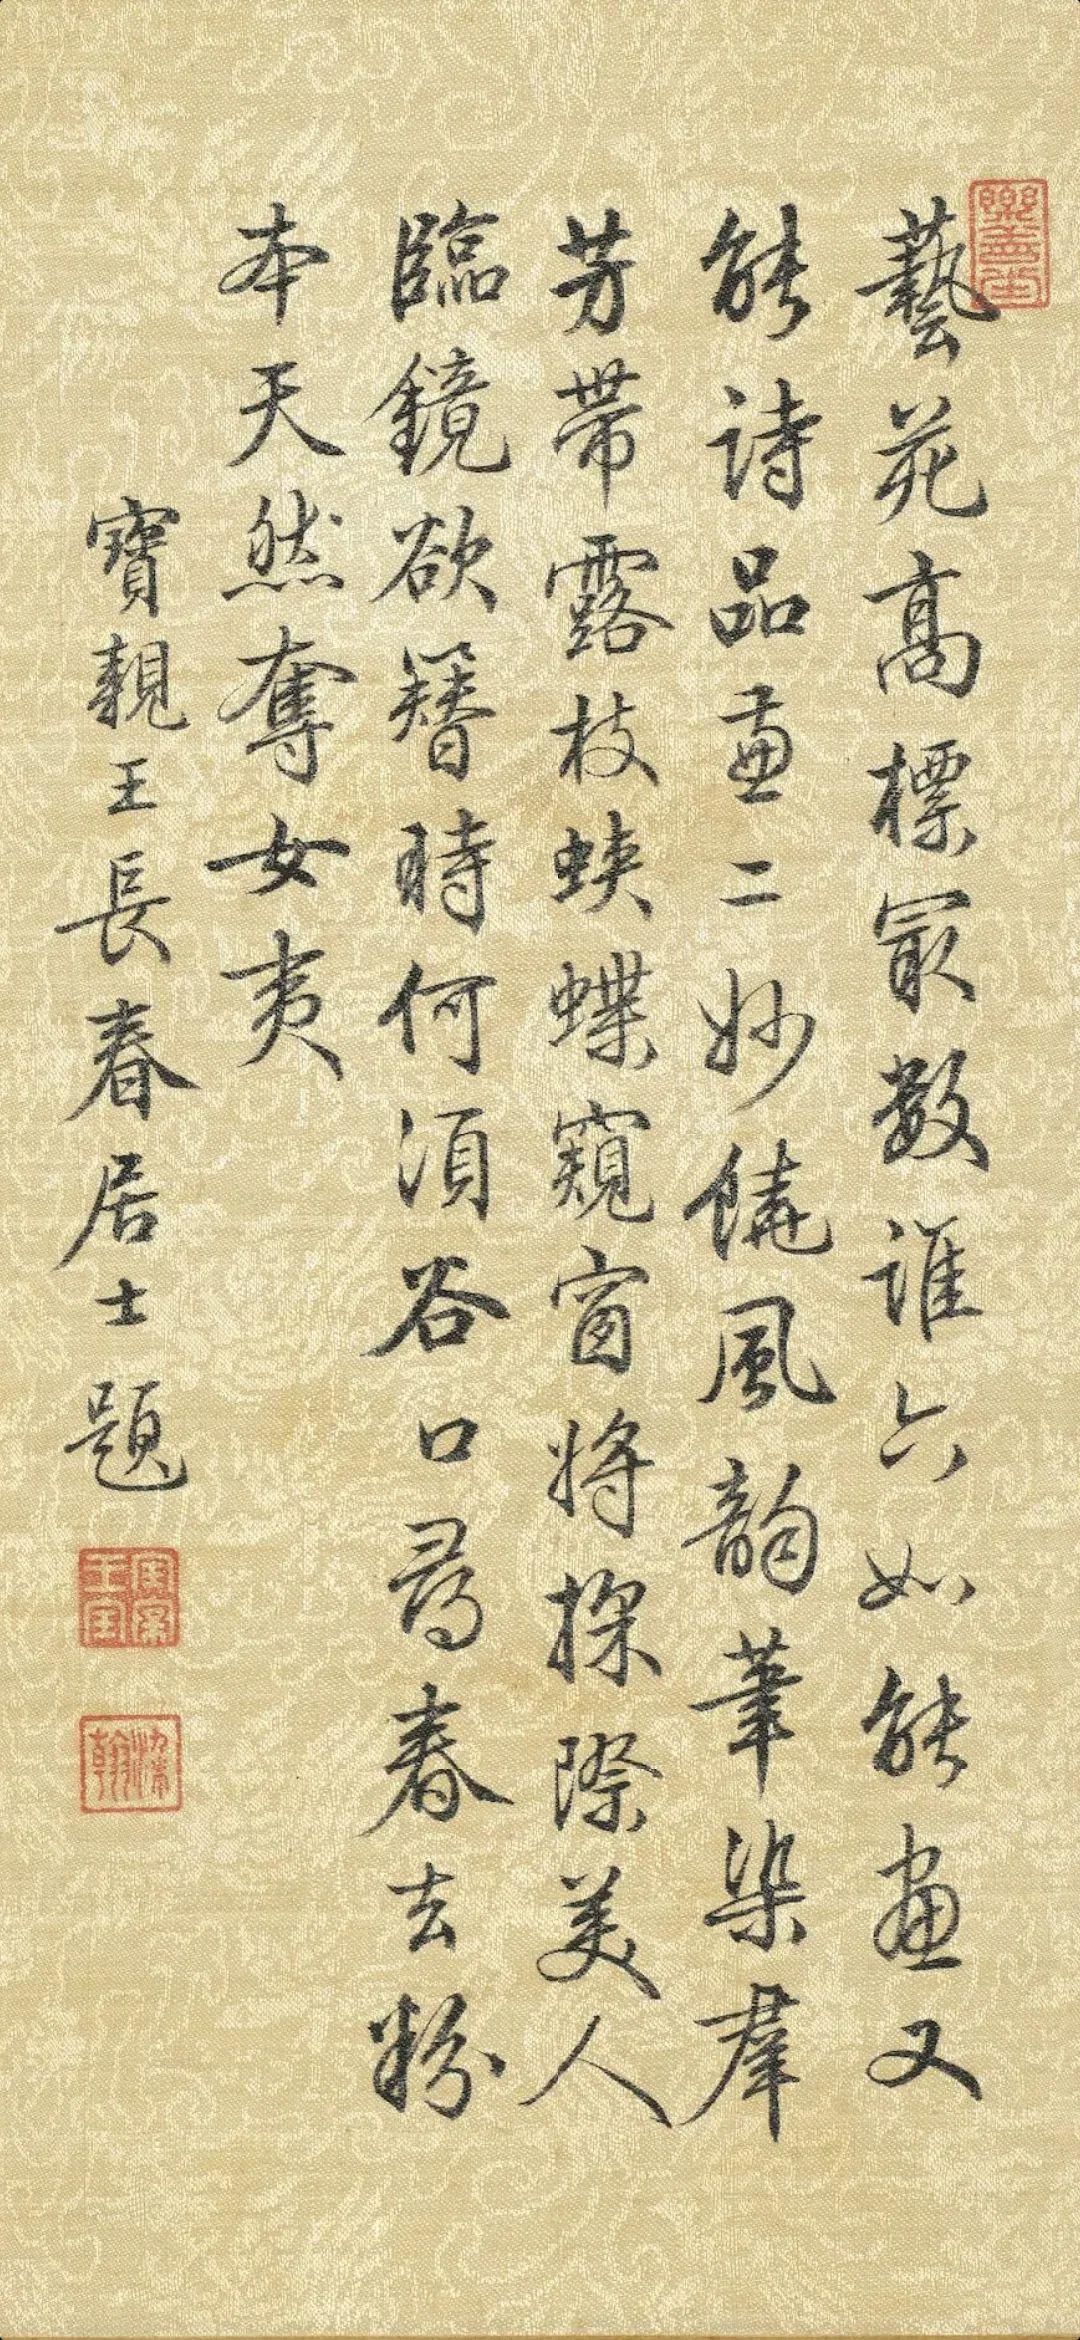 藝苑高標冣數誰六如能畫又
能詩品兼二妙饒風韻筆染羣
芳帶露枝蛺蝶窺窗將探際美人
臨鏡欲簪時何須谷口尋春去粉
本天然奪女夷
寶親王長春居士題
樂善堂
寶親王寶